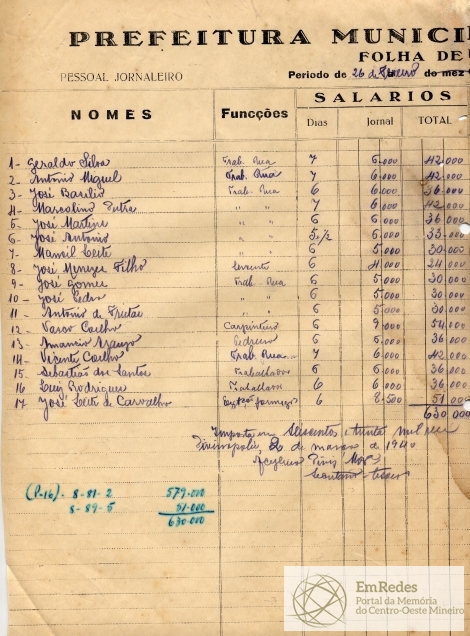 PREFEITURA MUNICI
FOLHA DE
PESSOAL JORNALEIRO Periodo de 26 de do mez
NOMES Funcções SALARIOS
Dias Jornal TOTAL
1- Geraldo Silva Trab. Rua 7 6.000 42.000
2- Antonio Miguel Trab. Rua 7 6.000 42.000
3- José Basilio Trab. Rua 6 6.000 36.000
4- Marcolino " " 7 6.000 42.000
5- José Martins " " 6 6.000 36.000
6- José Antonio " " 5.1/2 6.000 33.000
7- Manoel " " 6 5.000 30.000
8- José Menezes Filho Servente 6 4.000 24.000
9- José Gomes Trab. Rua 6 5.000 30.000
10- José " " 6 5.000 30.000
11- Antonio de Freitas " " 6 5.000 30.000
12- Vasco Coelho Carpinteiro 6 9.000 54.000
13- Amancio Pedreiro 6 6.000 36.000
14- Vicente Coelho Trab. Rua 7 6.000 42.000
15. Sebastião dos Santos Trabalhador 6 6.000 36.000
16 Luiz Rodrigues Trabalhador 6 6.000 36.000
17 José de Carvalho 6 8.500 51.000
630.000
Importa em Seiscentos e trinta mil reis
2 de março de 1940
(P-16)- 8-81-2 579.000
8-89-5 51.000
630.000
EmRedes
Portal da Memória
do Centro-Oeste Mineiro